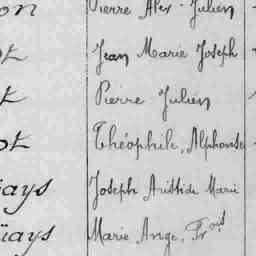 on Pierre Alex. Julien
ot Jean Marie Joseph
t Pierre Julien
ot Théophile, Alphonse
ays Joseph Aristide Marie
uays Marie Ange, Frois